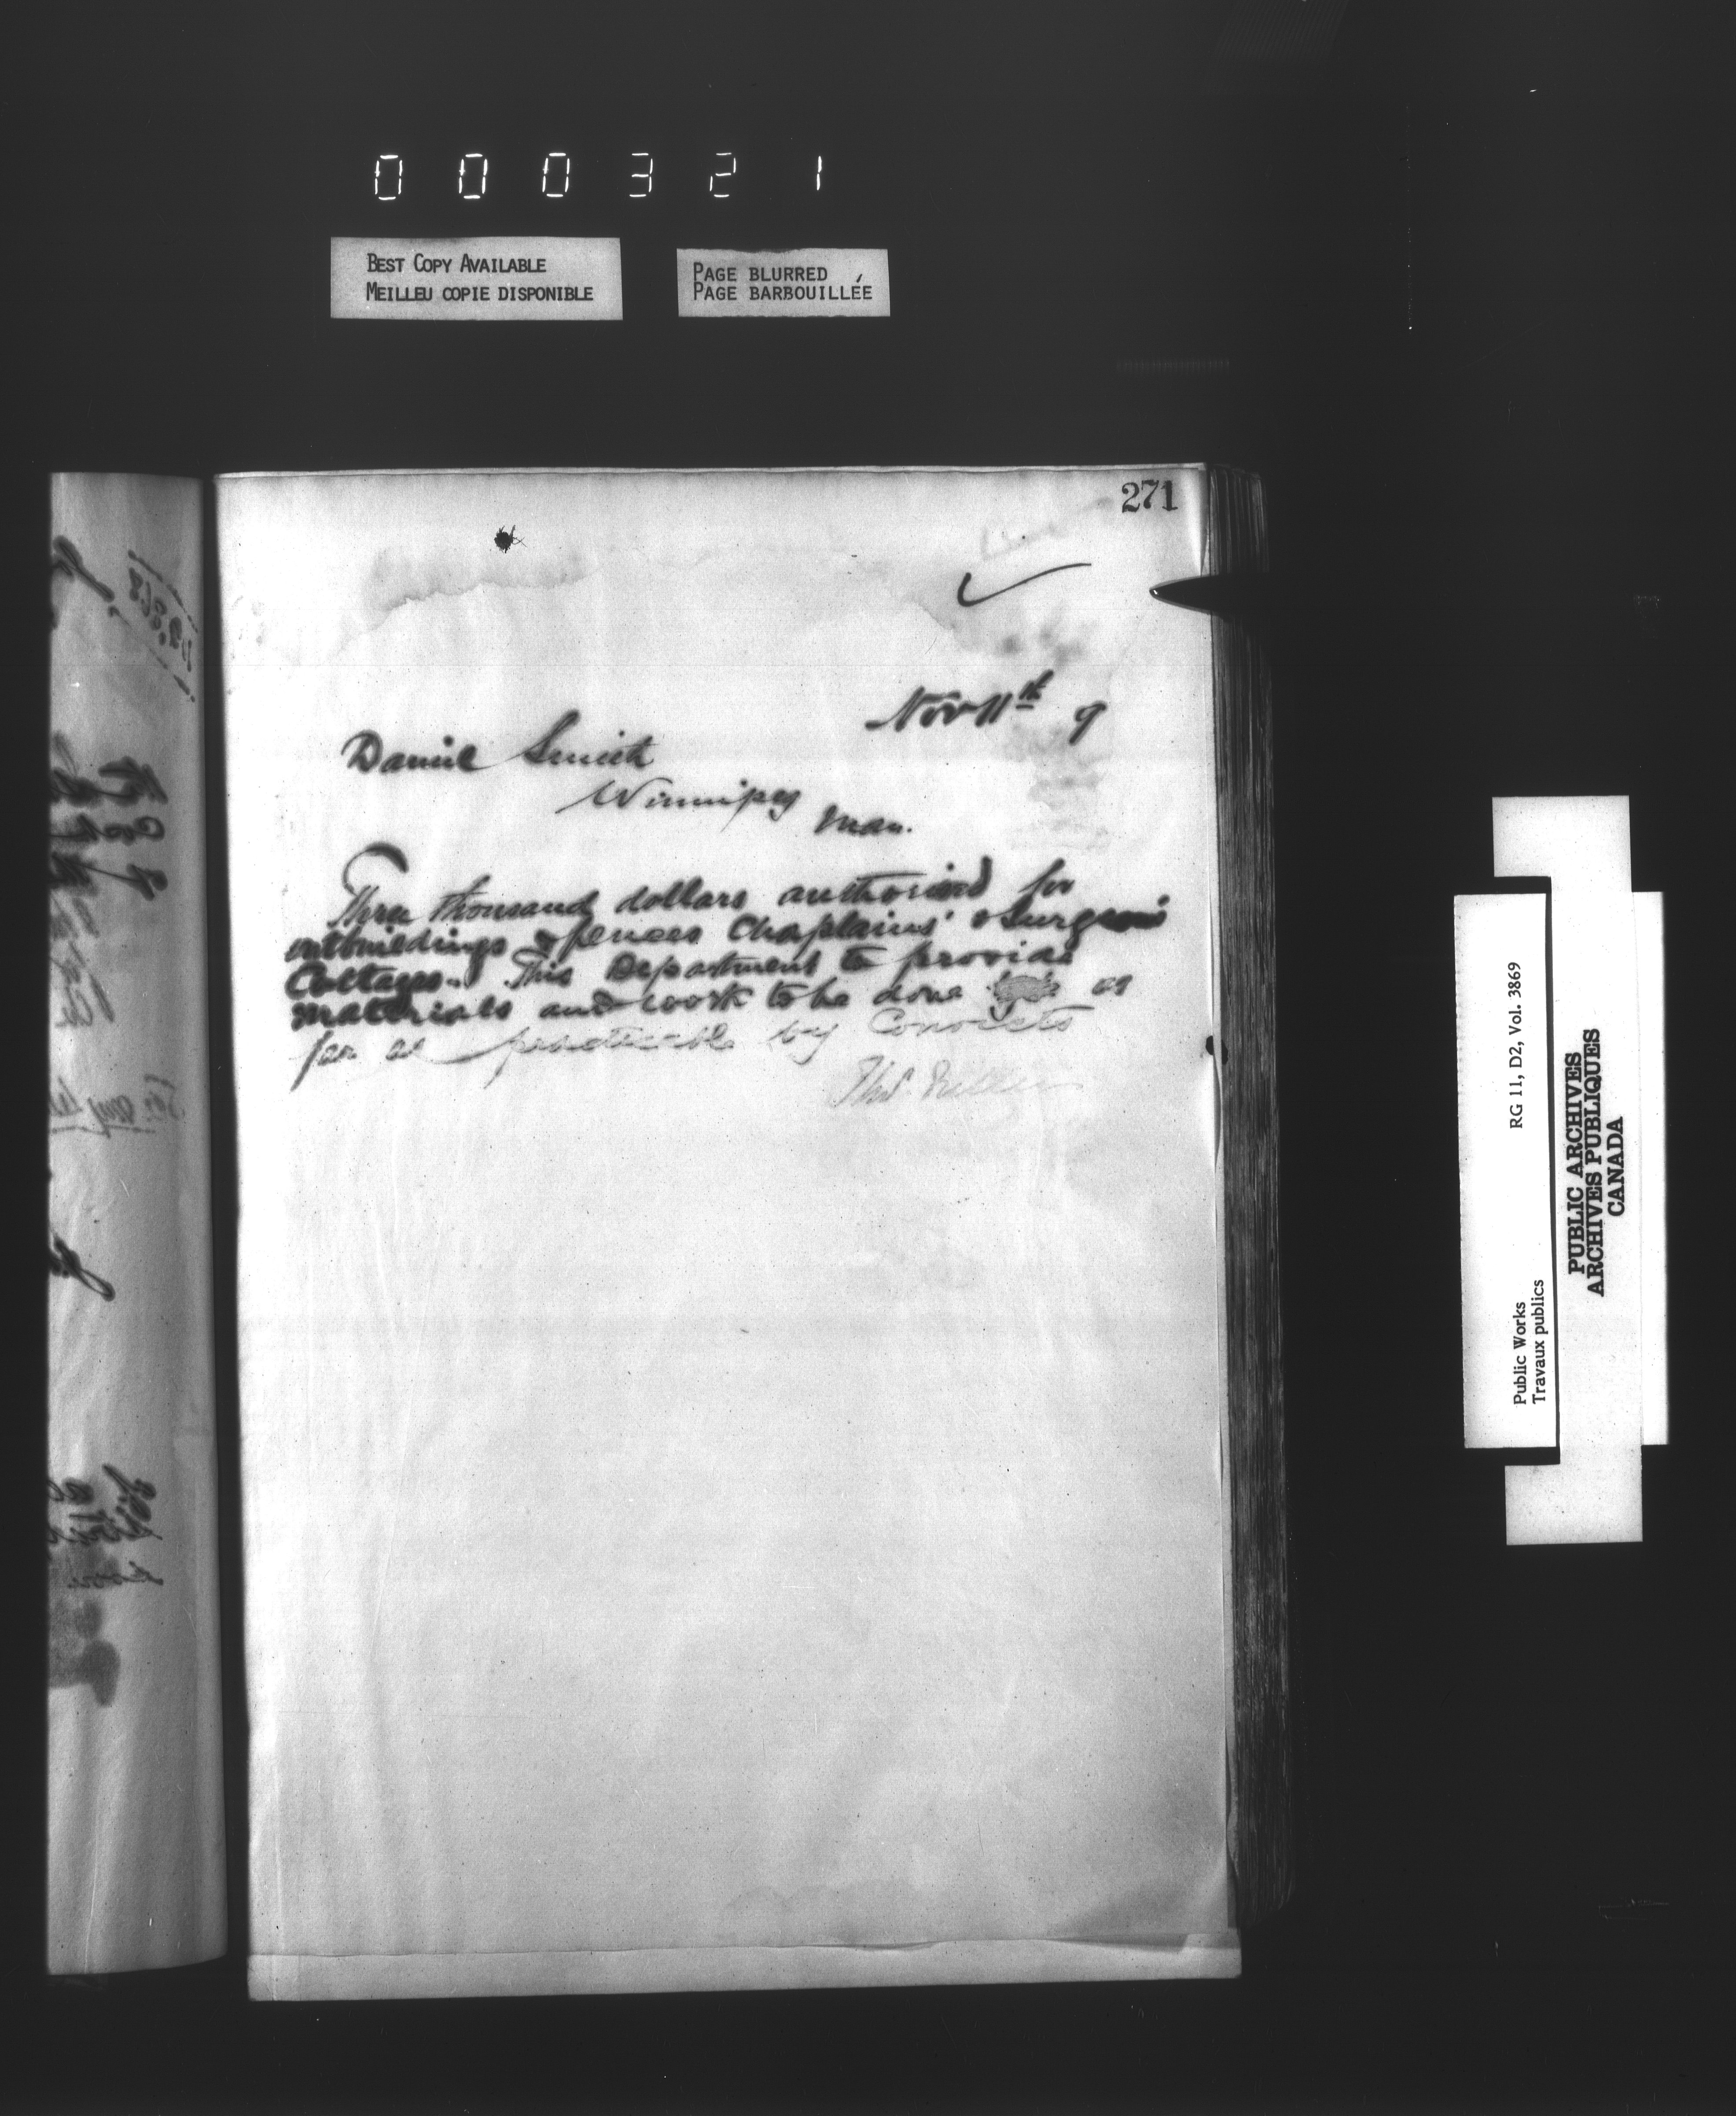 000321
BEST COPY AVAILABLE
MEILLEU COPIE DISPONIBLE
PAGE BLURRED
PAGE BARBOUILLÉE
271
Nov 11th 9
Daniel Smith
Winnipeg
Man.
Three thousand dollars authorized for
outbuildings & fences Chaplains' & Surgeon's
Cottages. This Department to provide
materials and work to be done as
far as practicable by Convicts
Thos. Fuller
Public Works
Travaux publics
RG 11, D2, Vol. 3869
PUBLIC ARCHIVES
ARCHIVES PUBLIQUES
CANADA